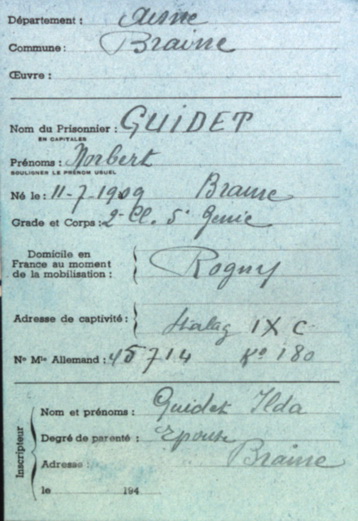 Département : Aisne
Commune : Braine
Œuvre :
Nom du Prisonnier : GUIDET
EN CAPITALES
Prénoms : Norbert
SOULIGNER LE PRÉNOM USUEL
Né le : 11-7-1909 Braine
Grade et Corps : 2e Cl. 5e Genie
Domicile en
France au moment
de la mobilisation : Rogny
Adresse de captivité : Stalag IX C
No Mle Allemand : 45714 Ko 180
Inscripteur
Nom et prénoms : Guidet Ilda
Degré de parenté : Epouse
Adresse : Braine
le 194